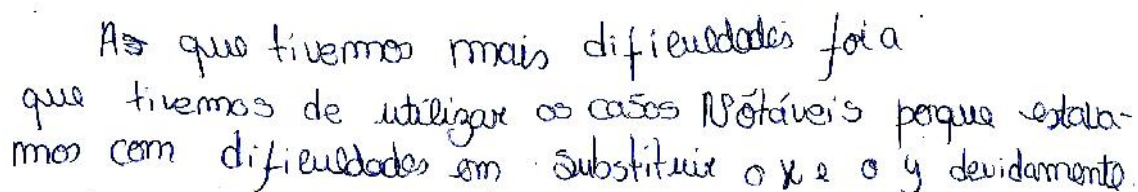 As que tivemos mais dificuldades foi a
que tivemos de utilizar os casos Nótáveis porque estava-
mos com dificuldades em substituir o x e o y devidamente.